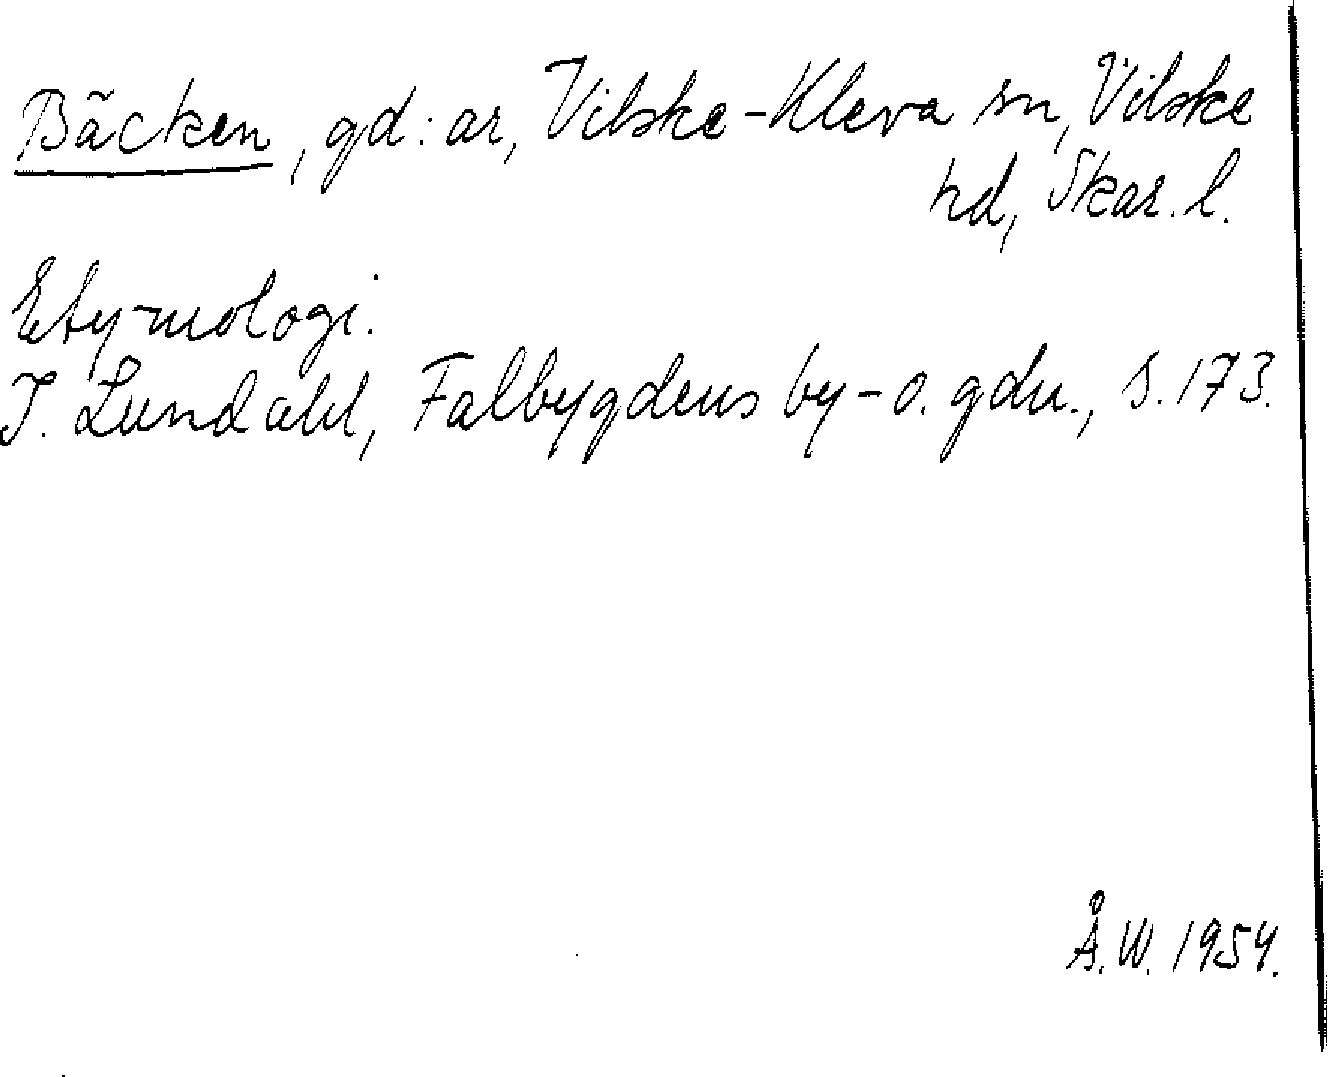 Bäcken, gd:ar, Vilske-Kleva sn, Vilske
hd, Skar. l.
Etymologi.
I. Lundahl, Falbygdens by- o. gdn., s. 173.
Å. W. 1954.